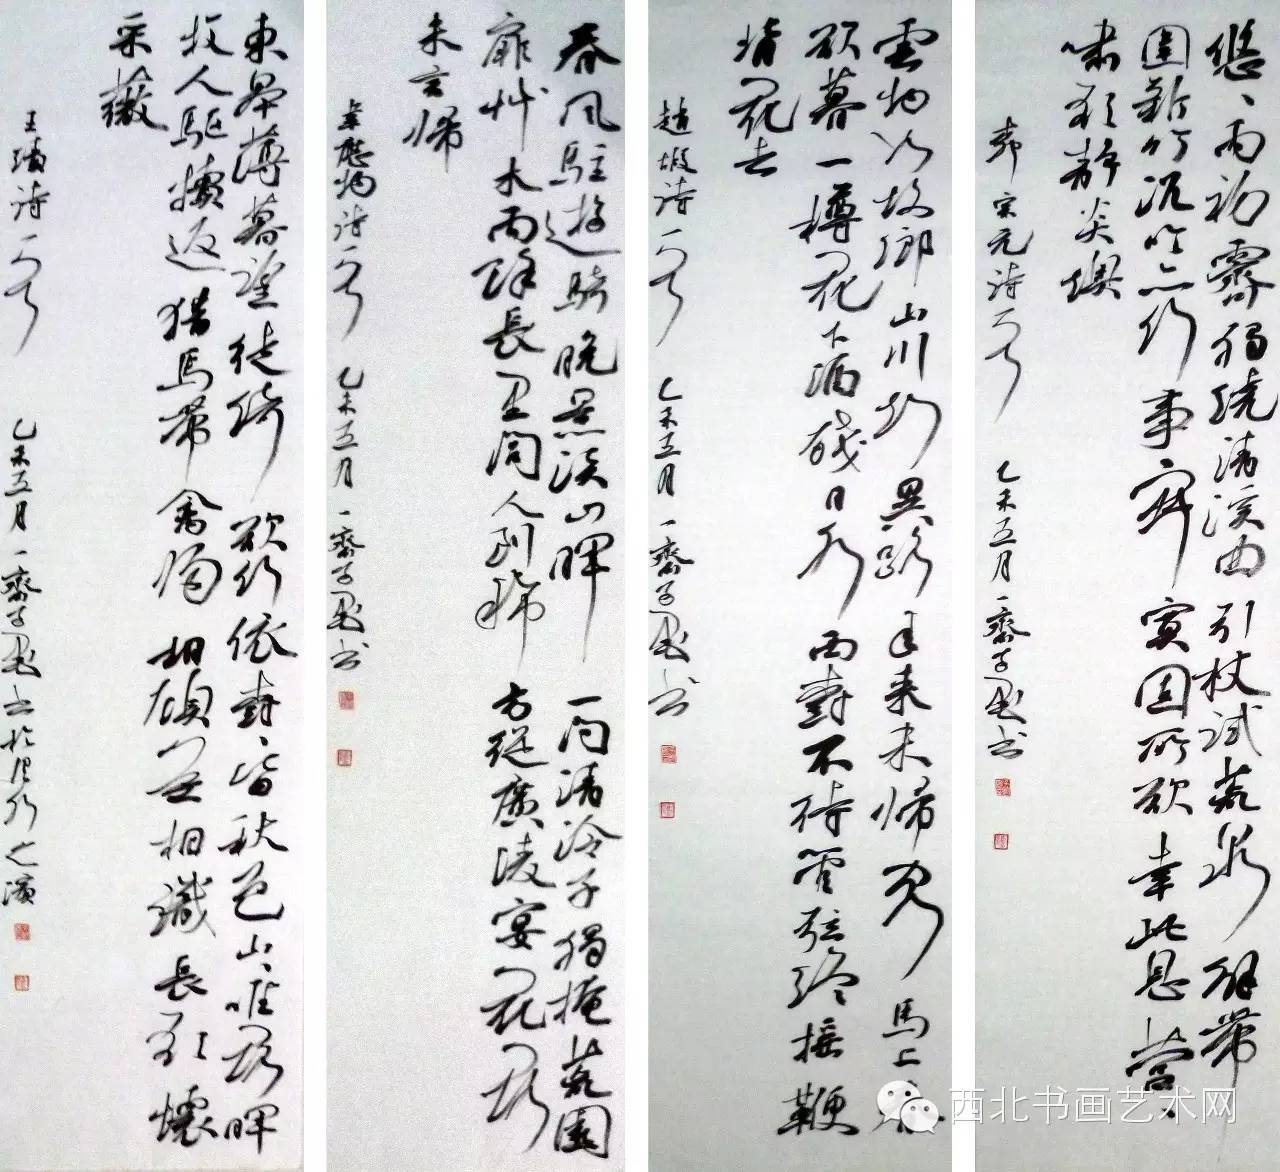 悠〻雨初霽獨繞清溪曲引杖試荒泉解帶
圍新竹沉吟亦何事寂寞固所欲幸此息營〻
嘯歌靜炎燠
柳宗元詩一首 乙未五月一齋子墨書
雲物如故鄉山川知異路年來未歸客馬上春
欲暮一樽花下酒殘日水西樹不待管弦終搖鞭
背花去
趙嘏詩一首 乙未五月一齋子墨書
春風駐遊騎晚景淡山暉一問清泠子獨掩荒園
扉艸木雨來長里閭人到稀方從廣陵宴花落
未言歸
韋應物詩一首 乙未五月一齋子墨書
東皋薄暮望徙倚欲何依樹〻皆秋色山〻唯落暉
牧人驅犢返獵馬帶禽歸相顧無相識長歌懷
采薇
王績詩一首 乙未五月一齋子墨書於之濱
西北书画艺术网